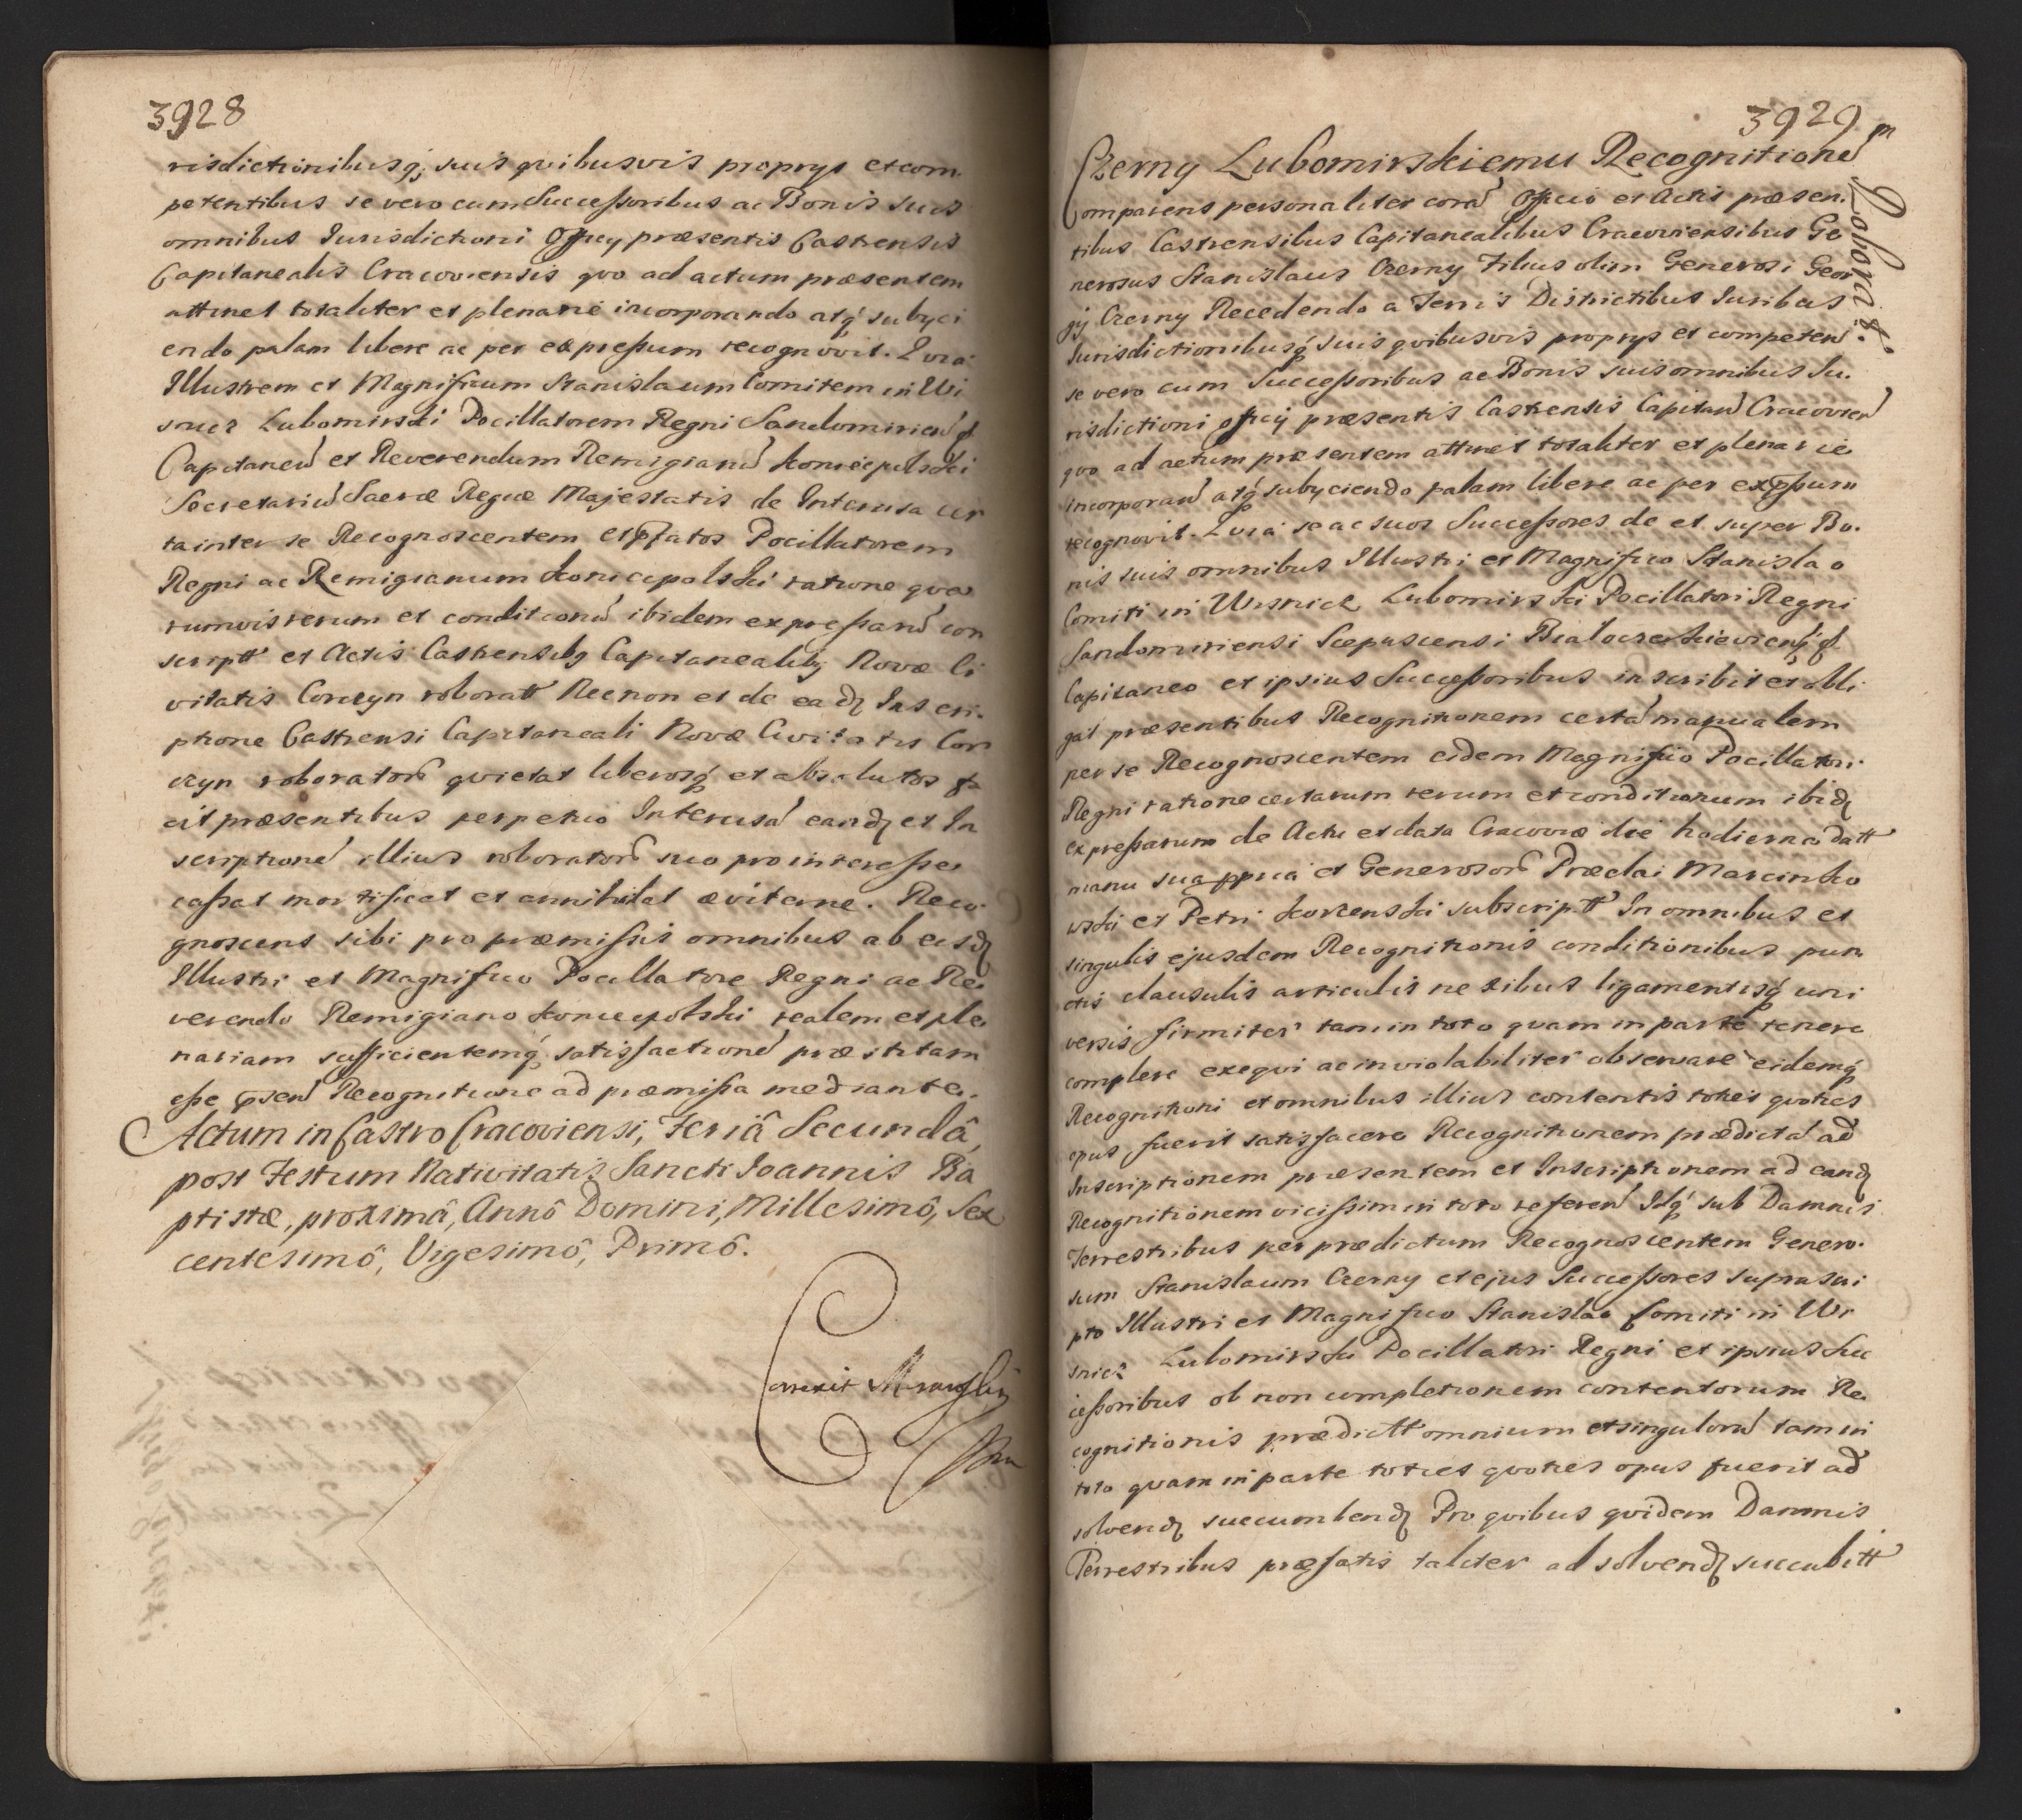 3928
risdictionibusq; suis quibusvis proprys et com
petentibus se vero cum Successoribus ac Bonis suis
omnibus Iurisdictioni Officy præsentis Castrensis
Capitanealis Cracoviensis quo ad actum præsentem
attinet totaliter et plenarie incorporando atq subyci
endo palam libere ac per expressum recognovit. Quia
Illustrem et Magnificum Stanislaum Comitem in Wi
snicz Lubomirski Pocillatorem Regni Sandomirien
Capitaneu et Reverendum Remigianu Koniecpolski
Secretariu Sacræ Regiæ Majestatis de Intercisa cer
ta inter se Recognoscentem et Pfatos Pocillatorem
Regni ac Remigianum Koniecpolski ratione qua
rumvis rerum et conditionu ibidem expressaru con
script et Actis Castrensibg Capitanealibg Novæ Ci
vitatis Corczyn roborat Necnon et de ead Inscri
ptione Castrensi Capitaneali Novæ Civitatis Cor
czyn roborator quietat liberosq et absolutos fa
cit præsentibus perpetuo Intercisa eand et In
scriptione illius roborator suo pro interesse
cassat mortificat et annihilat æviterne. Reco
gnoscens sibi pro præmissis omnibus ab eisd
Illustri et Magnifico Pocillatore Regni ac Re
verendo Remigiano Koniecpolski realem et ple
nariam sufficientemq satisfactione præstitam
esse psen Recognitione ad præmissa mediante.
Actum in Castro Cracoviensi, Feriâ Secundâ,
post Festum Nativitatis Sancti Ioannis Ba
ptistæ, proximâ, Annô Domini, Millesimô, Sex
centesimô, Vigesimô, Primô.
Correxit
3929
Czerny Lubomirskiemu Recognitione
Roborat
Comparens personaliter cora Officio et Actis præsen
tibus Castrensibus Capitanealibus Cracoviensibus Ge
nerosus Stanislaus Czerny Filius olim Generosi Geor
gij Czerny Recedendo a Terris Districtibus Iuribus
Iurisdictionibusq suis quibusvis proprys et competen
se vero cum Successoribus ac Bonis suis omnibus Iu
risdictioni officij præsentis Castrensis Capitan Cracovien
quo ad actum præsentem attinet totaliter et plenarie
incorporan atq subyciendo palam libere ac per expssum
recognovit. Quia se ac suos Successores de et super Bo
nis suis omnibus Illustri et Magnifico Stanislao
Comiti in Wisnicz Lubomirski Pocillatori Regni
Sandomiriensi Scepusiensi Bialocerkieviens
Capitaneo et ipsius Successoribus inscribit et obli
gat præsentibus Recognitionem certa manualem
per se Recognoscentem eidem Magnifico Pocillatori
Regni ratione certarum rerum et conditionum ibid
expressarum de Actu et data Cracoviæ die hodierna dat
manu sua ppria et Generosor Prædai Marcinko
wski et Petri Korzenski subscript In omnibus et
singulis ejusdem Recognitionis conditionibus pun
ctis clausulis articulis nexibus ligamentisq uni
versis firmiter tam in toto quam in parte tenere
complere exequi ac inviolabiliter observare eidemq
Recognitioni et omnibus illius contentis toties quoties
opus fuerit satisfacere Recognitionem prædicta ad
Inscriptionem præsentem et Inscriptionem ad eand
Recognitionem vicissim in toto referen Idq sub Damnis
Terrestribus per prædictum Recognoscentem Genero
sum Stanislaum Czerny et ejus Successores suprascri
pto Illustri et Magnifico Stanislao Comiti in Wi
snicz Lubomirski Pocillatori Regni et ipsius Suc
cessoribus ob non completionem contentorum Re
cognitionis prædict omnium et singuloru tam in
toto quam in parte toties quoties opus fuerit ad
solvend succumbend Pro quibus quidem Damnis
Terrestribus præfatis taliter ad solvend succubit